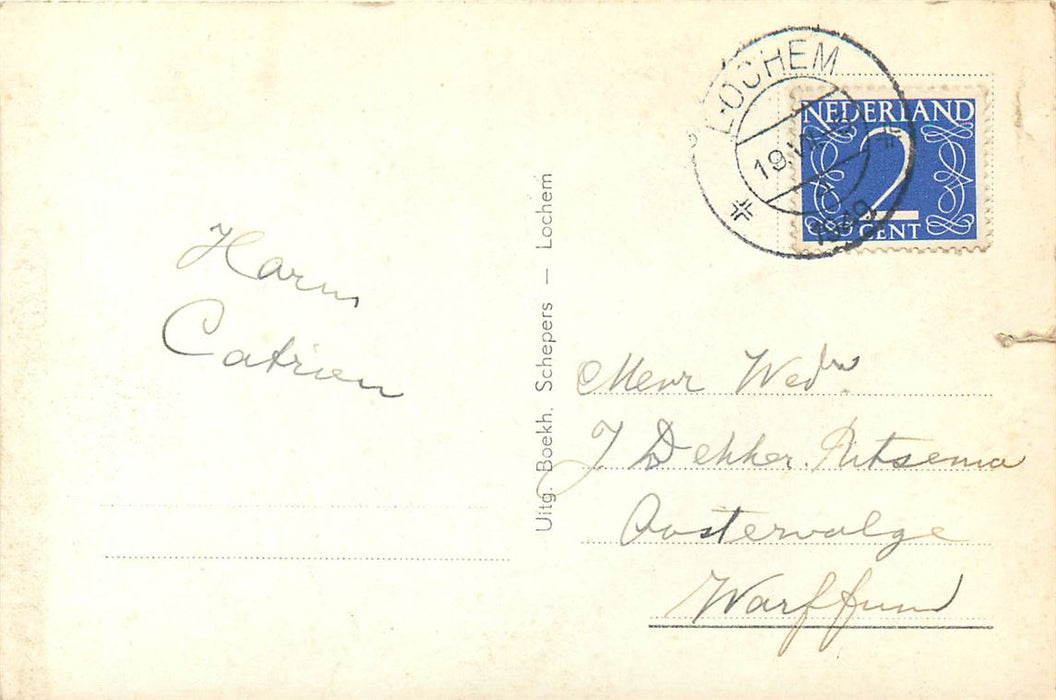 LOCHEM
19.VII
1949
NEDERLAND
2
CENT
Harm
Catrien
Uitg. Boekh. Schepers — Lochem
Mevr Wed.
J Dekker. Ritsema
Oosterwalge
Warffum